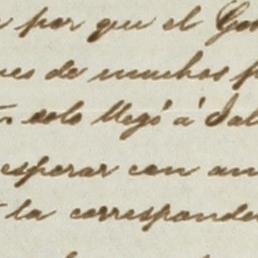 por que el Go
es de muchos p
solo llegó á Sal
esperar con an
la corresponde